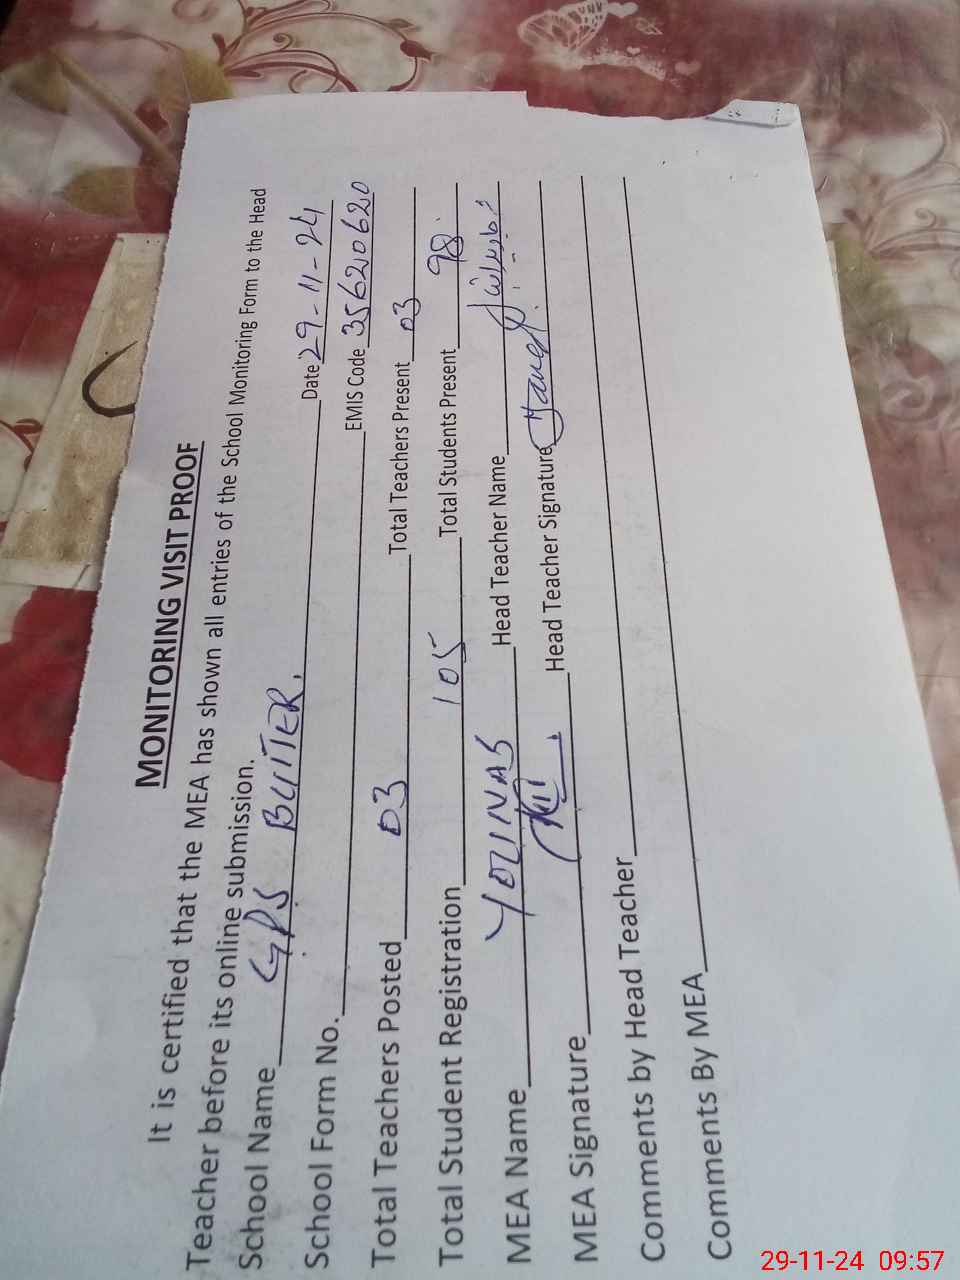 MONITORING VISIT PROOF
It is certified that the MEA has shown all entries of the School Monitoring Form to the Head
Teacher before its online submission.
School Name GPS BUITER. Date 29-11-24
School Form No. EMIS Code 35620620
Total Teachers Posted 03 Total Teachers Present 03
Total Student Registration 105 Total Students Present 98
MEA Name YOUNAS Head Teacher Name
MEA Signature Head Teacher Signature
Comments by Head Teacher
Comments By MEA
29-11-24 09:57